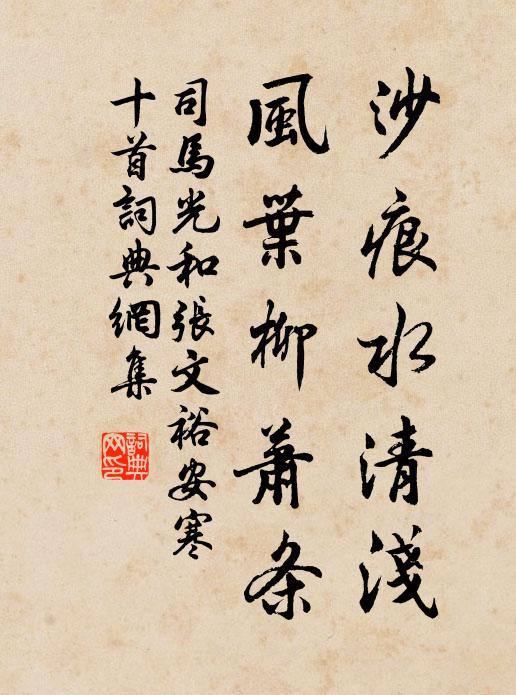 沙痕水清淺
風葉柳蕭条
司馬光和張文裕安寒
十首詞典網集
詞典網印